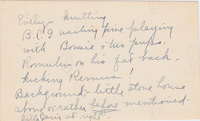 Evelyn knitting
B.C.G wasting time playing
with Bonnie & his pups.
Romulus on his fat back -
kicking Remus!
Background - little stone house
above or rather before mentioned.
at right.